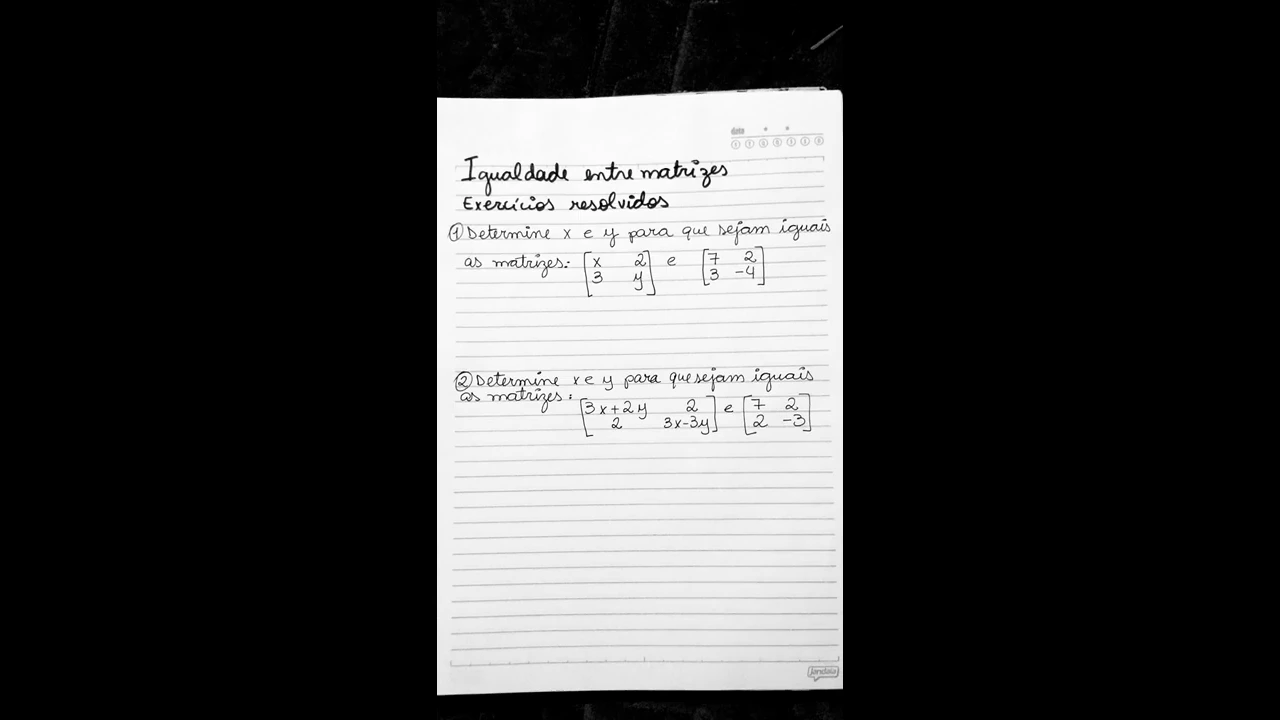 data
Igualdade entre matrizes
Exercícios resolvidos
① Determine x e y para que sejam iguais
as matrizes: [x 2] e [7 2]
[3 y] [3 -4]
② Determine x e y para que sejam iguais
as matrizes:
[3x+2y 2] e [7 2]
[2 3x-3y] [2 -3]
jandaia